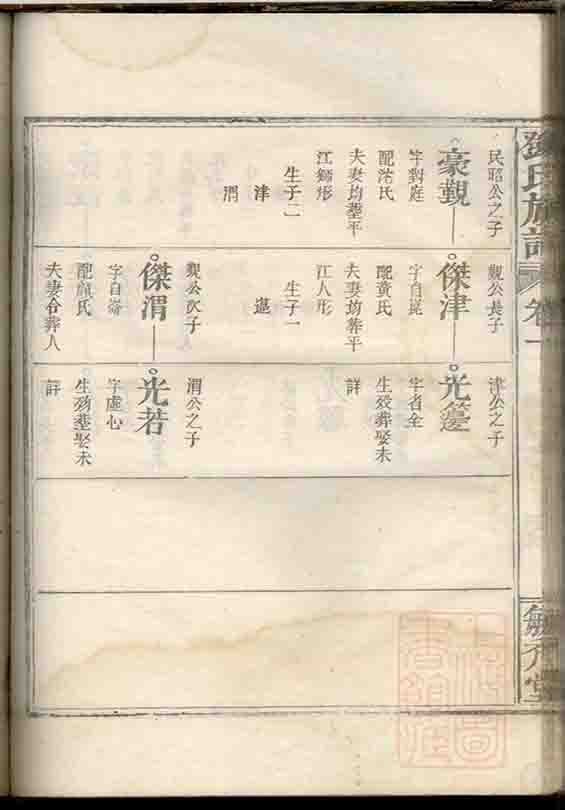 氏族譜 卷一
民昭公之子
豪觀
字對庭
配沈氏
夫妻均塟平
江獅形
生子二
津
渭
觀公長子
傑津
字自崑
配黃氏
夫妻均葬平
江人形
生子一
籩
觀公次子
傑渭
字自崙
配顏氏
夫妻合葬人
津公之子
光籩
字者全
生歿葬娶未
詳
渭公之子
光若
字虛心
生歿塟娶未
詳
上海圖
書館藏